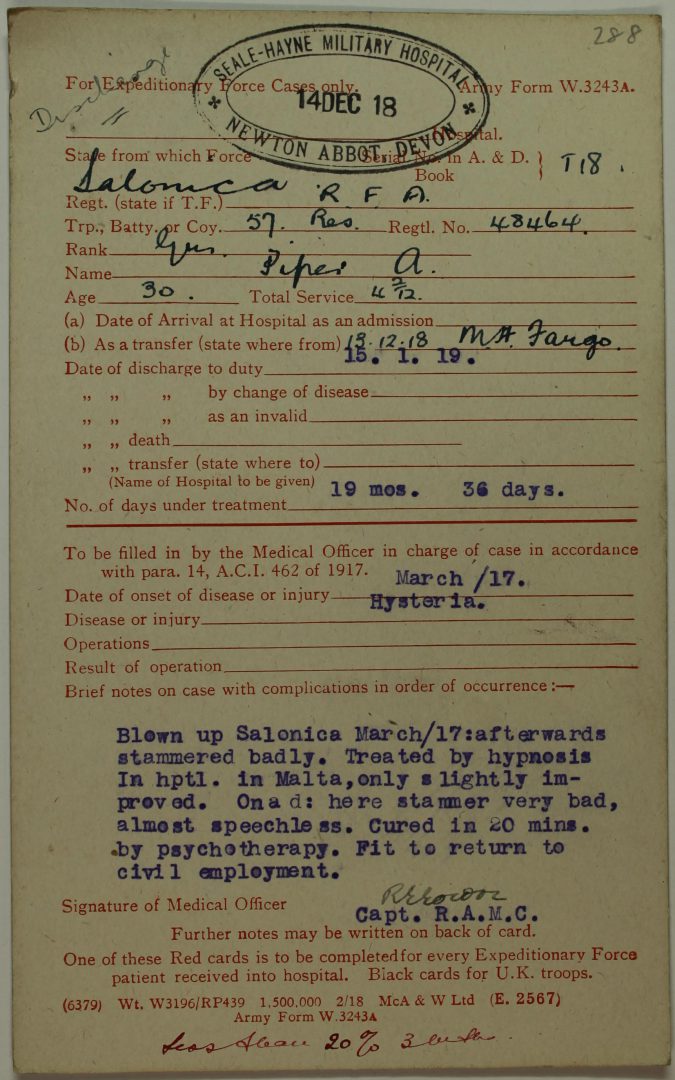 288
Discharge
SEALE-HAYNE MILITARY HOSPITAL
14 DEC 18
NEWTON ABBOT, DEVON
For Expeditionary Force Cases only. Army Form W.3243A.
Hospital.
State from which Force Serial No. in A. & D. Book } T18.
Salonica
Regt. (state if T.F.) R. F. A.
Trp., Batty. or Coy. 57. Res. Regtl. No. 48464.
Rank Gnr.
Name Piper A.
Age 30. Total Service 4 2/12.
(a) Date of Arrival at Hospital as an admission
(b) As a transfer (state where from) 13.12.18 M.H. Fargo.
15. 1. 19.
Date of discharge to duty
„ „ „ by change of disease
„ „ „ as an invalid
„ „ death
„ „ transfer (state where to)
(Name of Hospital to be given) 19 mos. 36 days.
No. of days under treatment
To be filled in by the Medical Officer in charge of case in accordance
with para. 14, A.C.I. 462 of 1917.
March /17.
Date of onset of disease or injury
Hysteria.
Disease or injury
Operations
Result of operation
Brief notes on case with complications in order of occurrence :—
Blown up Salonica March/17:afterwards
stammered badly. Treated by hypnosis
In hptl. in Malta,only slightly im-
proved. On a d: here stammer very bad,
almost speechless. Cured in 20 mins.
by psychotherapy. Fit to return to
civil employment.
Signature of Medical Officer
Capt. R.A.M.C.
Further notes may be written on back of card.
One of these Red cards is to be completed for every Expeditionary Force
patient received into hospital. Black cards for U.K. troops.
(6379) Wt. W3196/RP439 1,500,000 2/18 McA & W Ltd (E. 2567)
Army Form W.3243A
Less than 20%